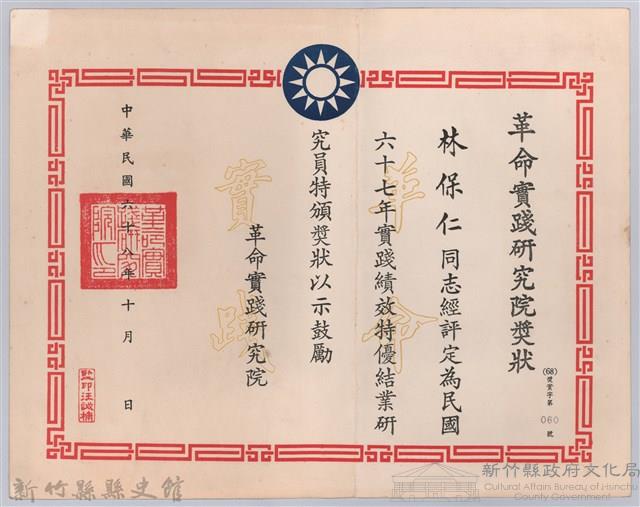 革命實踐研究院獎狀
(68)獎實字第060號
林保仁同志經評定為民國
六十七年實踐績效特優結業研
究員特頒獎狀以示鼓勵
革命實踐研究院
中華民國六十八年十月 日
革命
實踐
新竹縣縣史館
新竹縣政府文化局
Cultural Affairs Bureau of Hsinchu
County Government